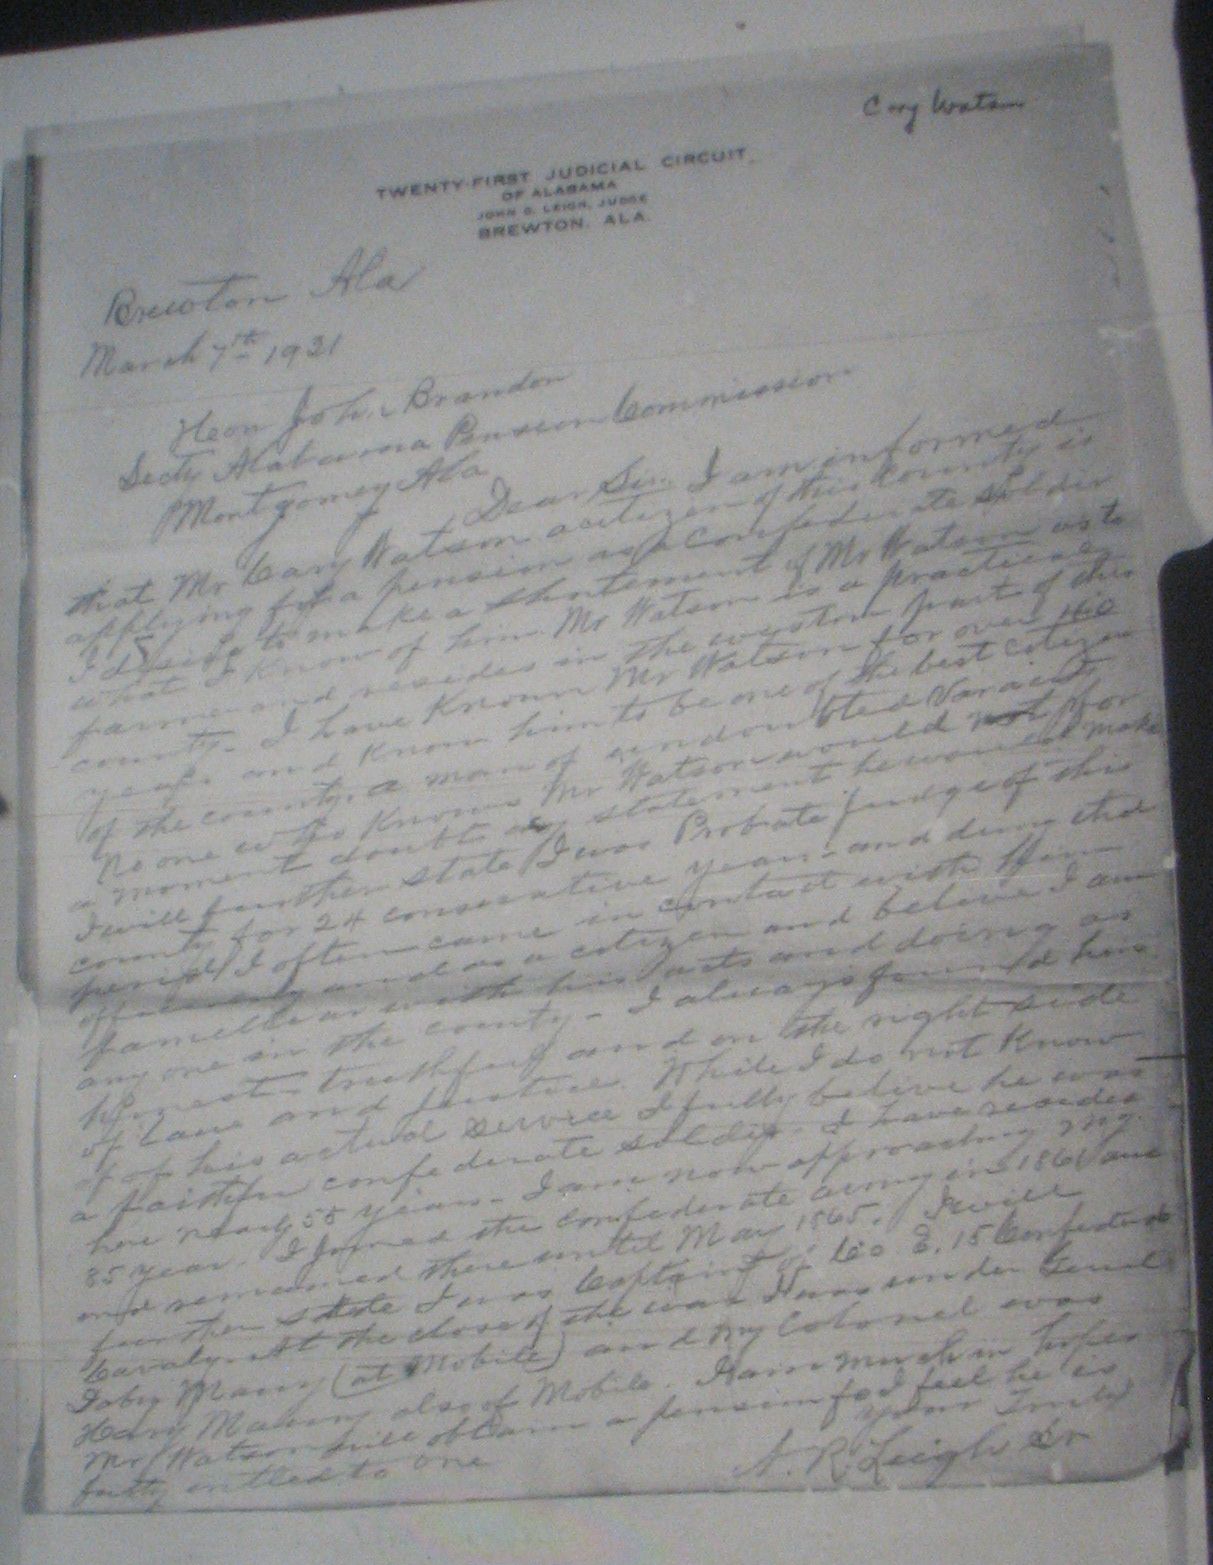 Cary Watson
TWENTY-FIRST JUDICIAL CIRCUIT
OF ALABAMA
JOHN D. LEIGH, JUDGE
BREWTON, ALA.
Brewton Ala
March 7th 1931
Hon John Brandon
Secty Alabama Pension Commission
Montgomery Ala
Dear Sir. I am informed
that Mr Cary Watson a citizen of this County is
applying for a pension as a Confederate Soldier
I desire to make a statement of Mr Watson as to
what I know of him. Mr Watson is a practical
farmer and resides in the western part of this
county. I have Known Mr Watson for over 40
years and Know him to be one of the best citizen
of the county. a man of undoubted Varacity
No one who Knows Mr Watson would not for
a moment doubt any statement he would make
I will further state I was Probate Judge of this
county for 24 consecutive years and during that
period I often came in contact with him
officially and as a citizen and believe I am
familiar with his acts and doing as
any one in the county - I always found him
honest - truthful and on the right side
of law and justice. While I do not Know
of his actual service I fully belive he was
a faithful confederate soldier. I have resided
here nearly 55 years. I am now approaching my
85 year. I joined the Confederate army in 1861 and
and remained there until May 1865. I will
further state I was Captain of Co E. 15 Confederate
Cavalry. At the close of the war I was under Genl
Dabny Maury (at Mobile) and my Colonel was
Harry Maury also of Mobile. I am much in hopes
Mr Watson will obtain a pension for I feel he is
fully entitled to one
Your Truly
N. R. Leigh Sr